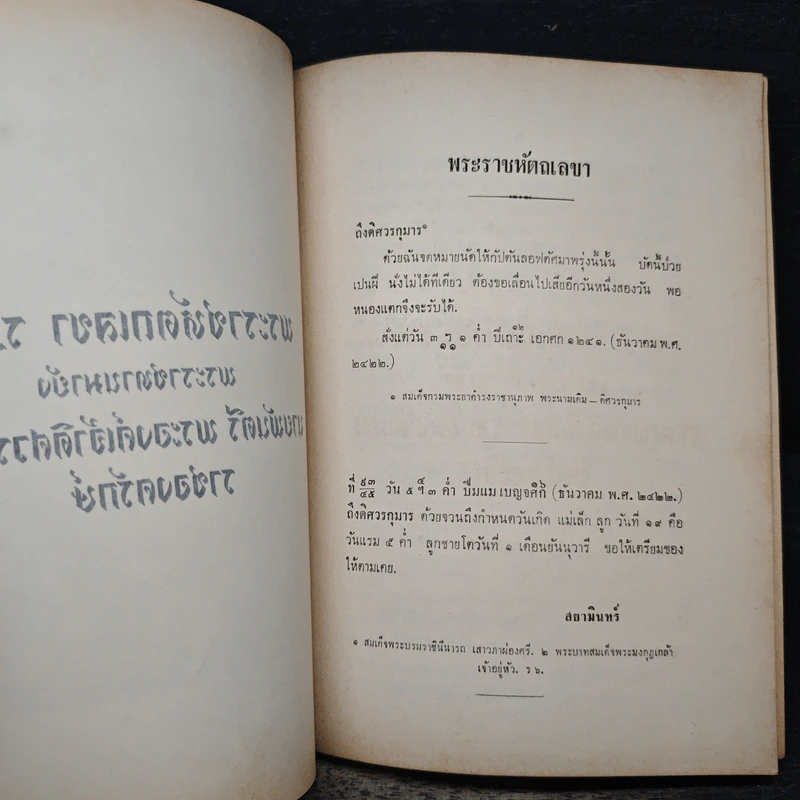 พระราชหัตถเลขา
ถึงดิศวรกุมาร๑
ด้วยฉันจดหมายนัดให้กัปตันลอฟตัศมาพรุ่งนี้นั้น บัดนี้ป่วย
เปนฝี นั่งไม่ได้ทีเดียว ต้องขอเลื่อนไปเสียอีกวันหนึ่งสองวัน พอ
หนองแตกจึงจะรับได้.
สั่งแต่วัน ๓ ๑ ค่ำ ปีเถาะ เอกศก ๑๒๔๑. (ธันวาคม พ.ศ.
๒๔๒๒.)
๑ สมเด็จกรมพระยาดำรงราชานุภาพ พระนามเดิม – ดิศวรกุมาร
ที่ ๙๓/๔๕ วัน ๕ ๓ ค่ำ ปีมแม เบญจศก (ธันวาคม พ.ศ. ๒๔๒๒.)
ถึงดิศวรกุมาร ด้วยจวนถึงกำหนดวันเกิด แม่เล็ก ลูก วันที่ ๑๙ คือ
วันแรม ๕ ค่ำ ลูกชายโตวันที่ ๑ เดือนยันนุวารี ขอให้เตรียมของ
ให้ตามเคย.
สยามินทร์
๑ สมเด็จพระบรมราชินีนารถ เสาวภาผ่องศรี. ๒ พระบาทสมเด็จพระมงกุฎเกล้า
เจ้าอยู่หัว. ร ๖.